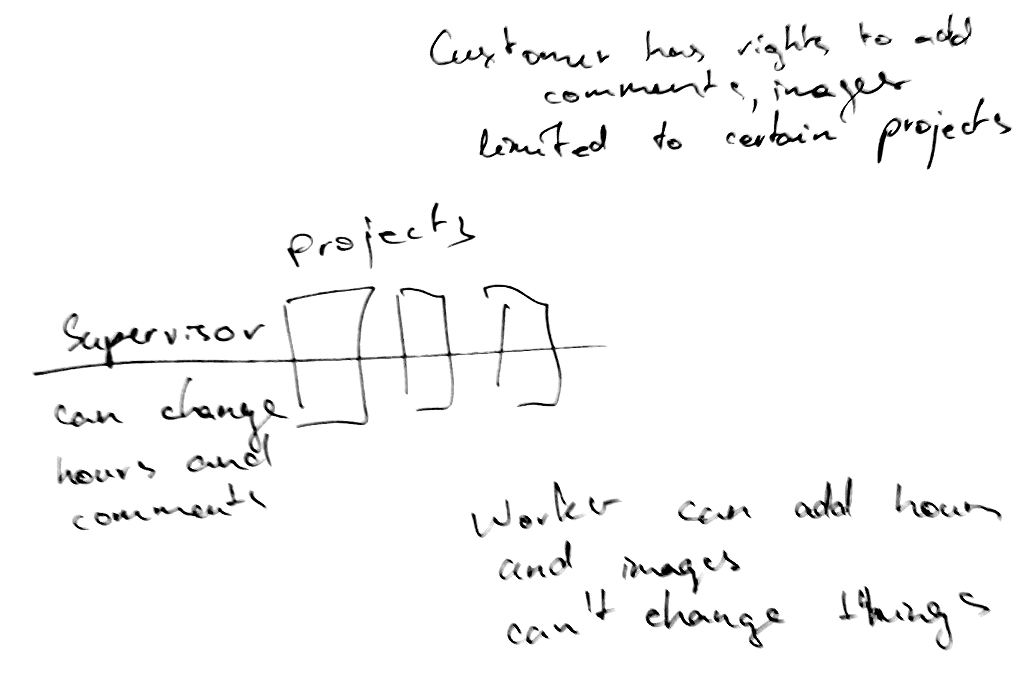 Customer has rights to add
comments, images
limited to certain projects
Projects
Supervisor
can change
hours and
comments
Worker can add hours
and images
can't change things